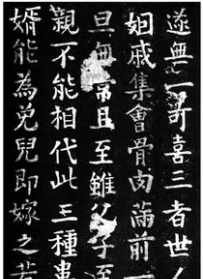 遂無可喜三者世
姻戚集會骨肉滿前一
旦無常且至雖父子至
親不能相代此三種事
婿能為免兒即嫁之若